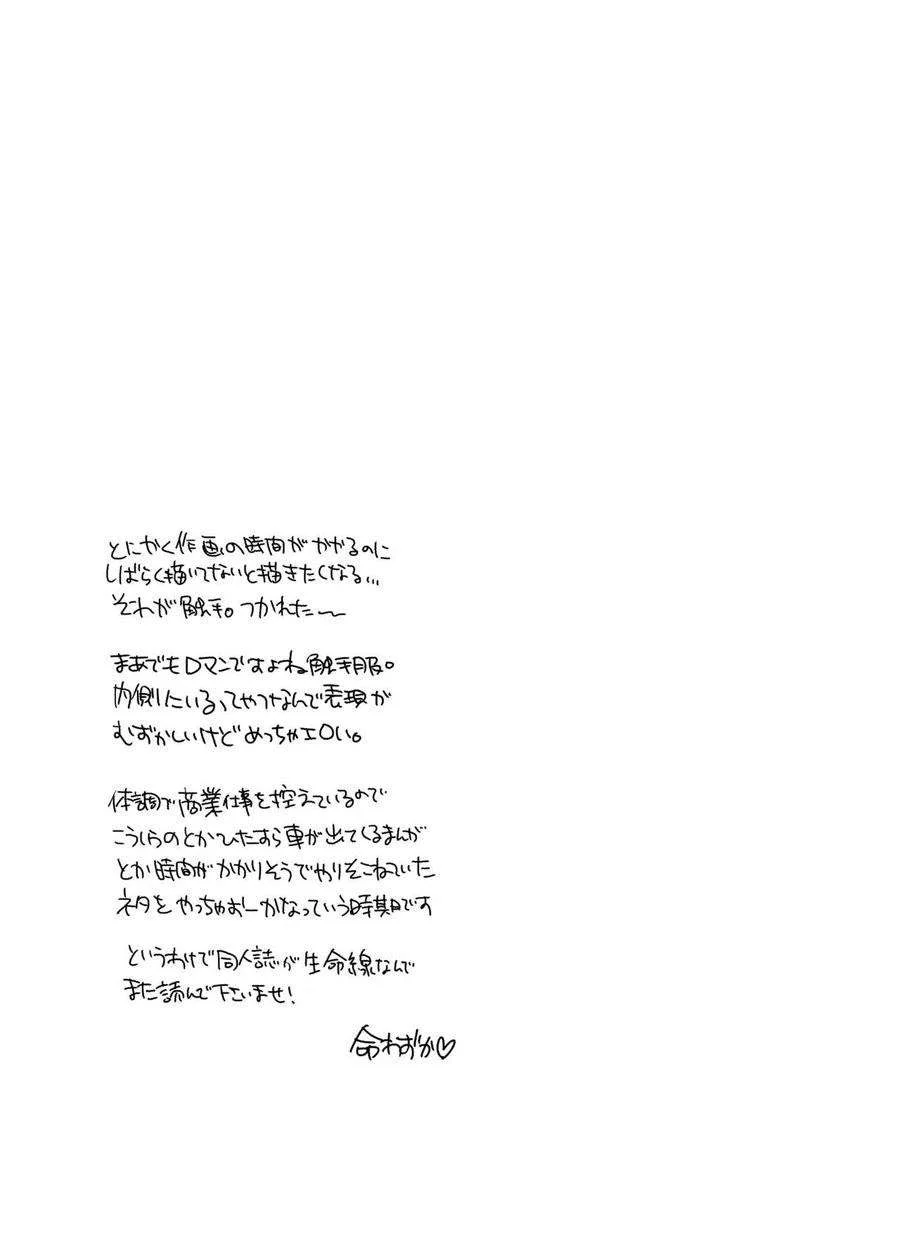 とにかく作画の時間がかかるのに
しばらく描いてないと描きたくなる...
それが触手。つかれた〜
まあでもロマンですよね触手服。
内側にいるってやつなんで表現が
むずかしいけどめっちゃエロい。
体調で商業仕事を控えているので
こうらのとかひたすら車が出てくるまんが
とか時間がかかりそうでやりそこねていた
ネタをやっちゃおーかなっていう時期です
というわけで同人誌が生命線なんで
また読んで下さいませ!
命わずか♡